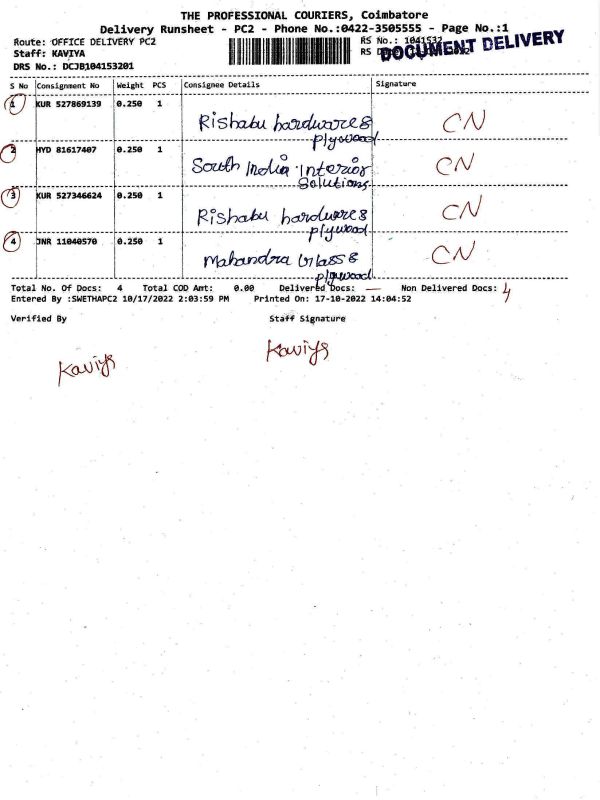 THE PROFESSIONAL COURIERS, Coimbatore
Delivery Runsheet - PC2 - Phone No.:0422-3505555 - Page No.:1
Route: OFFICE DELIVERY PC2
RS No.: 1041532
Staff: KAVIYA
RS
DOCUMENT DELIVERY
DRS No.: DCJB104153201
S No Consignment No Weight PCS Consignee Details Signature
1 KUR 527869139 0.250 1
Rishabu hardwares CN
plywood
2 HYD 81617407 0.250 1
South India Interior CN
Solutions
3 KUR 527346624 0.250 1
Rishabu hardwares CN
plywood
4 JNR 11040570 0.250 1
Mahandra Glass & CN
plywood
Total No. Of Docs: 4 Total COD Amt: 0.00 Delivered Docs: — Non Delivered Docs: 4
Entered By :SWETHAPC2 10/17/2022 2:03:59 PM Printed On: 17-10-2022 14:04:52
Verified By Staff Signature
Kaviya Kaviya